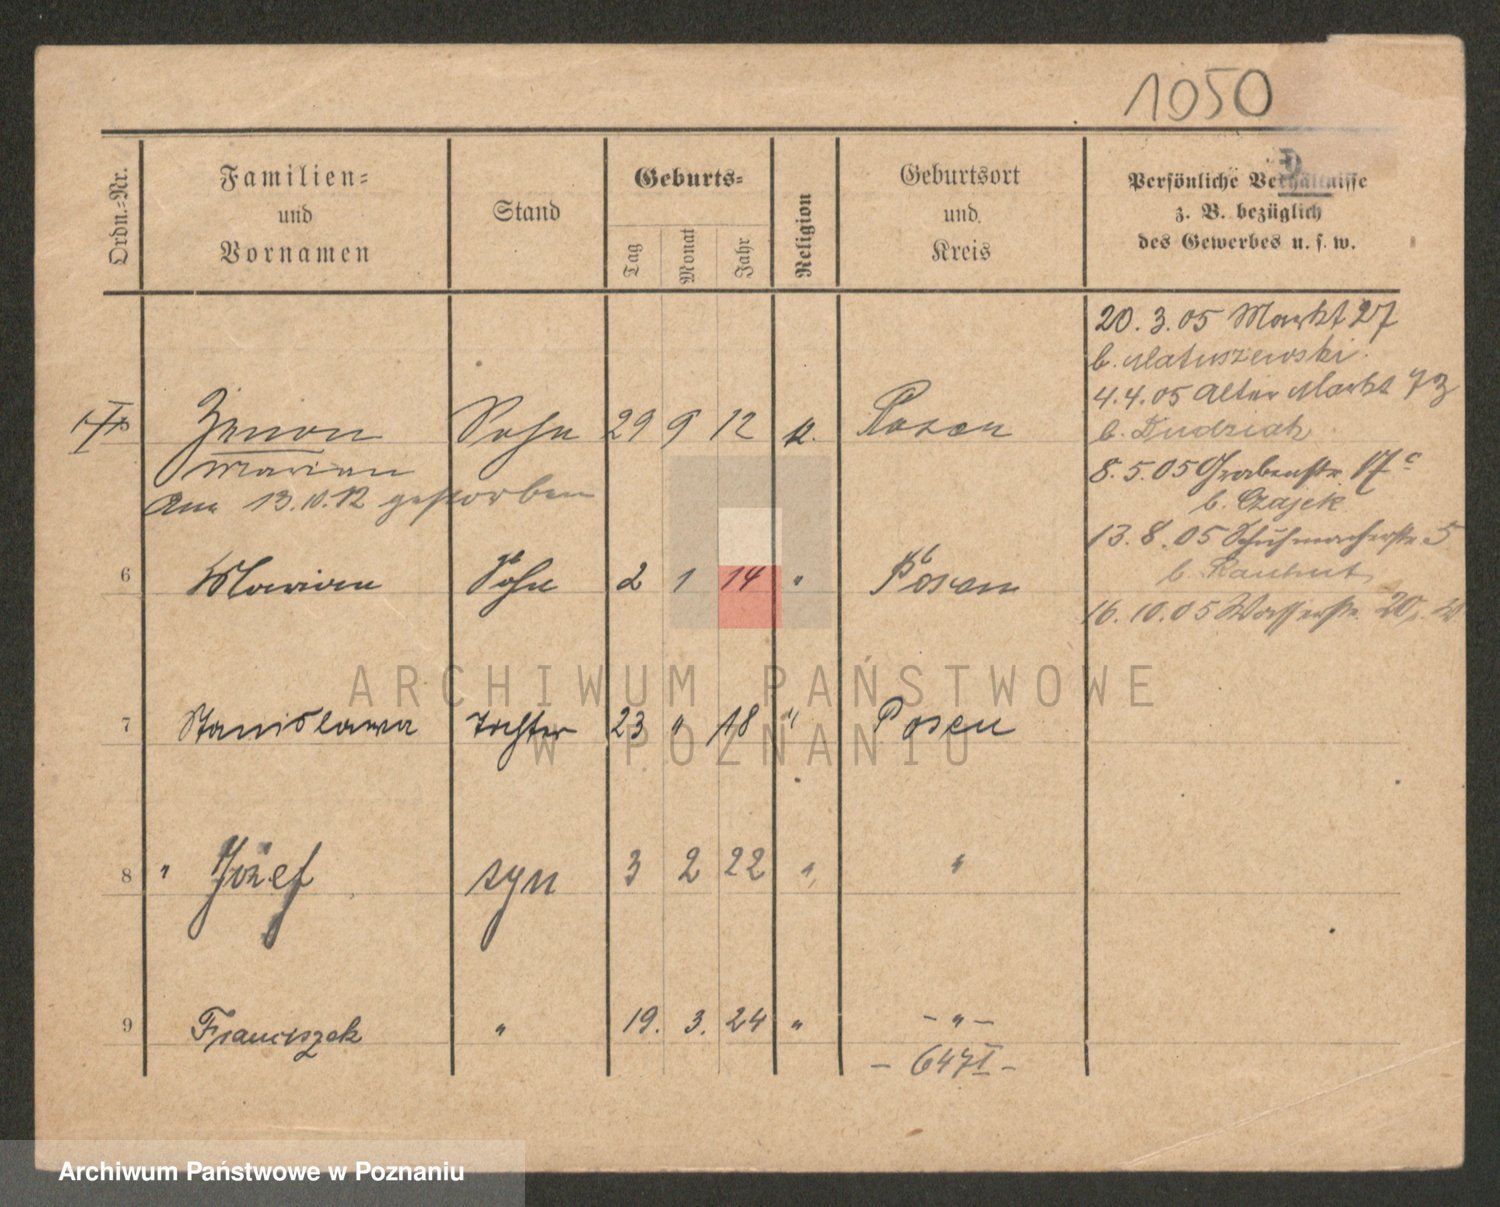 1050
Ordn.-Nr.
Familien-
und
Vornamen
Stand
Geburts-
Tag
Monat
Jahr
Religion
Geburtsort
und
Kreis
Persönliche Verhältnisse
z. B. bezüglich
des Gewerbes u. s. w.
20. 3. 05 Markt 27
b. Matuszewski.
4. 4. 05 Alter Markt 73
5 Zenon Sohn 29 9 12 k. Posen
b. Dudziak
Marian
8. 5. 05 Grabenstr. 17c
Am 13.10.12 gestorben
b. Czajek
13. 8. 05 Schuhmacherstr. 5
6 Marian Sohn 2 1 14 " Posen
b. Kauhut
16. 10. 05 Wasserstr. 20
ARCHIWUM PAŃSTWOWE
7 Stanislawa Tochter 23 " 18 " Posen
W POZNANIU
8 " Józef syn 3 2 22 " "
9 Franciszek " 19. 3. 24 " - " -
- 647I -
Archiwum Państwowe w Poznaniu